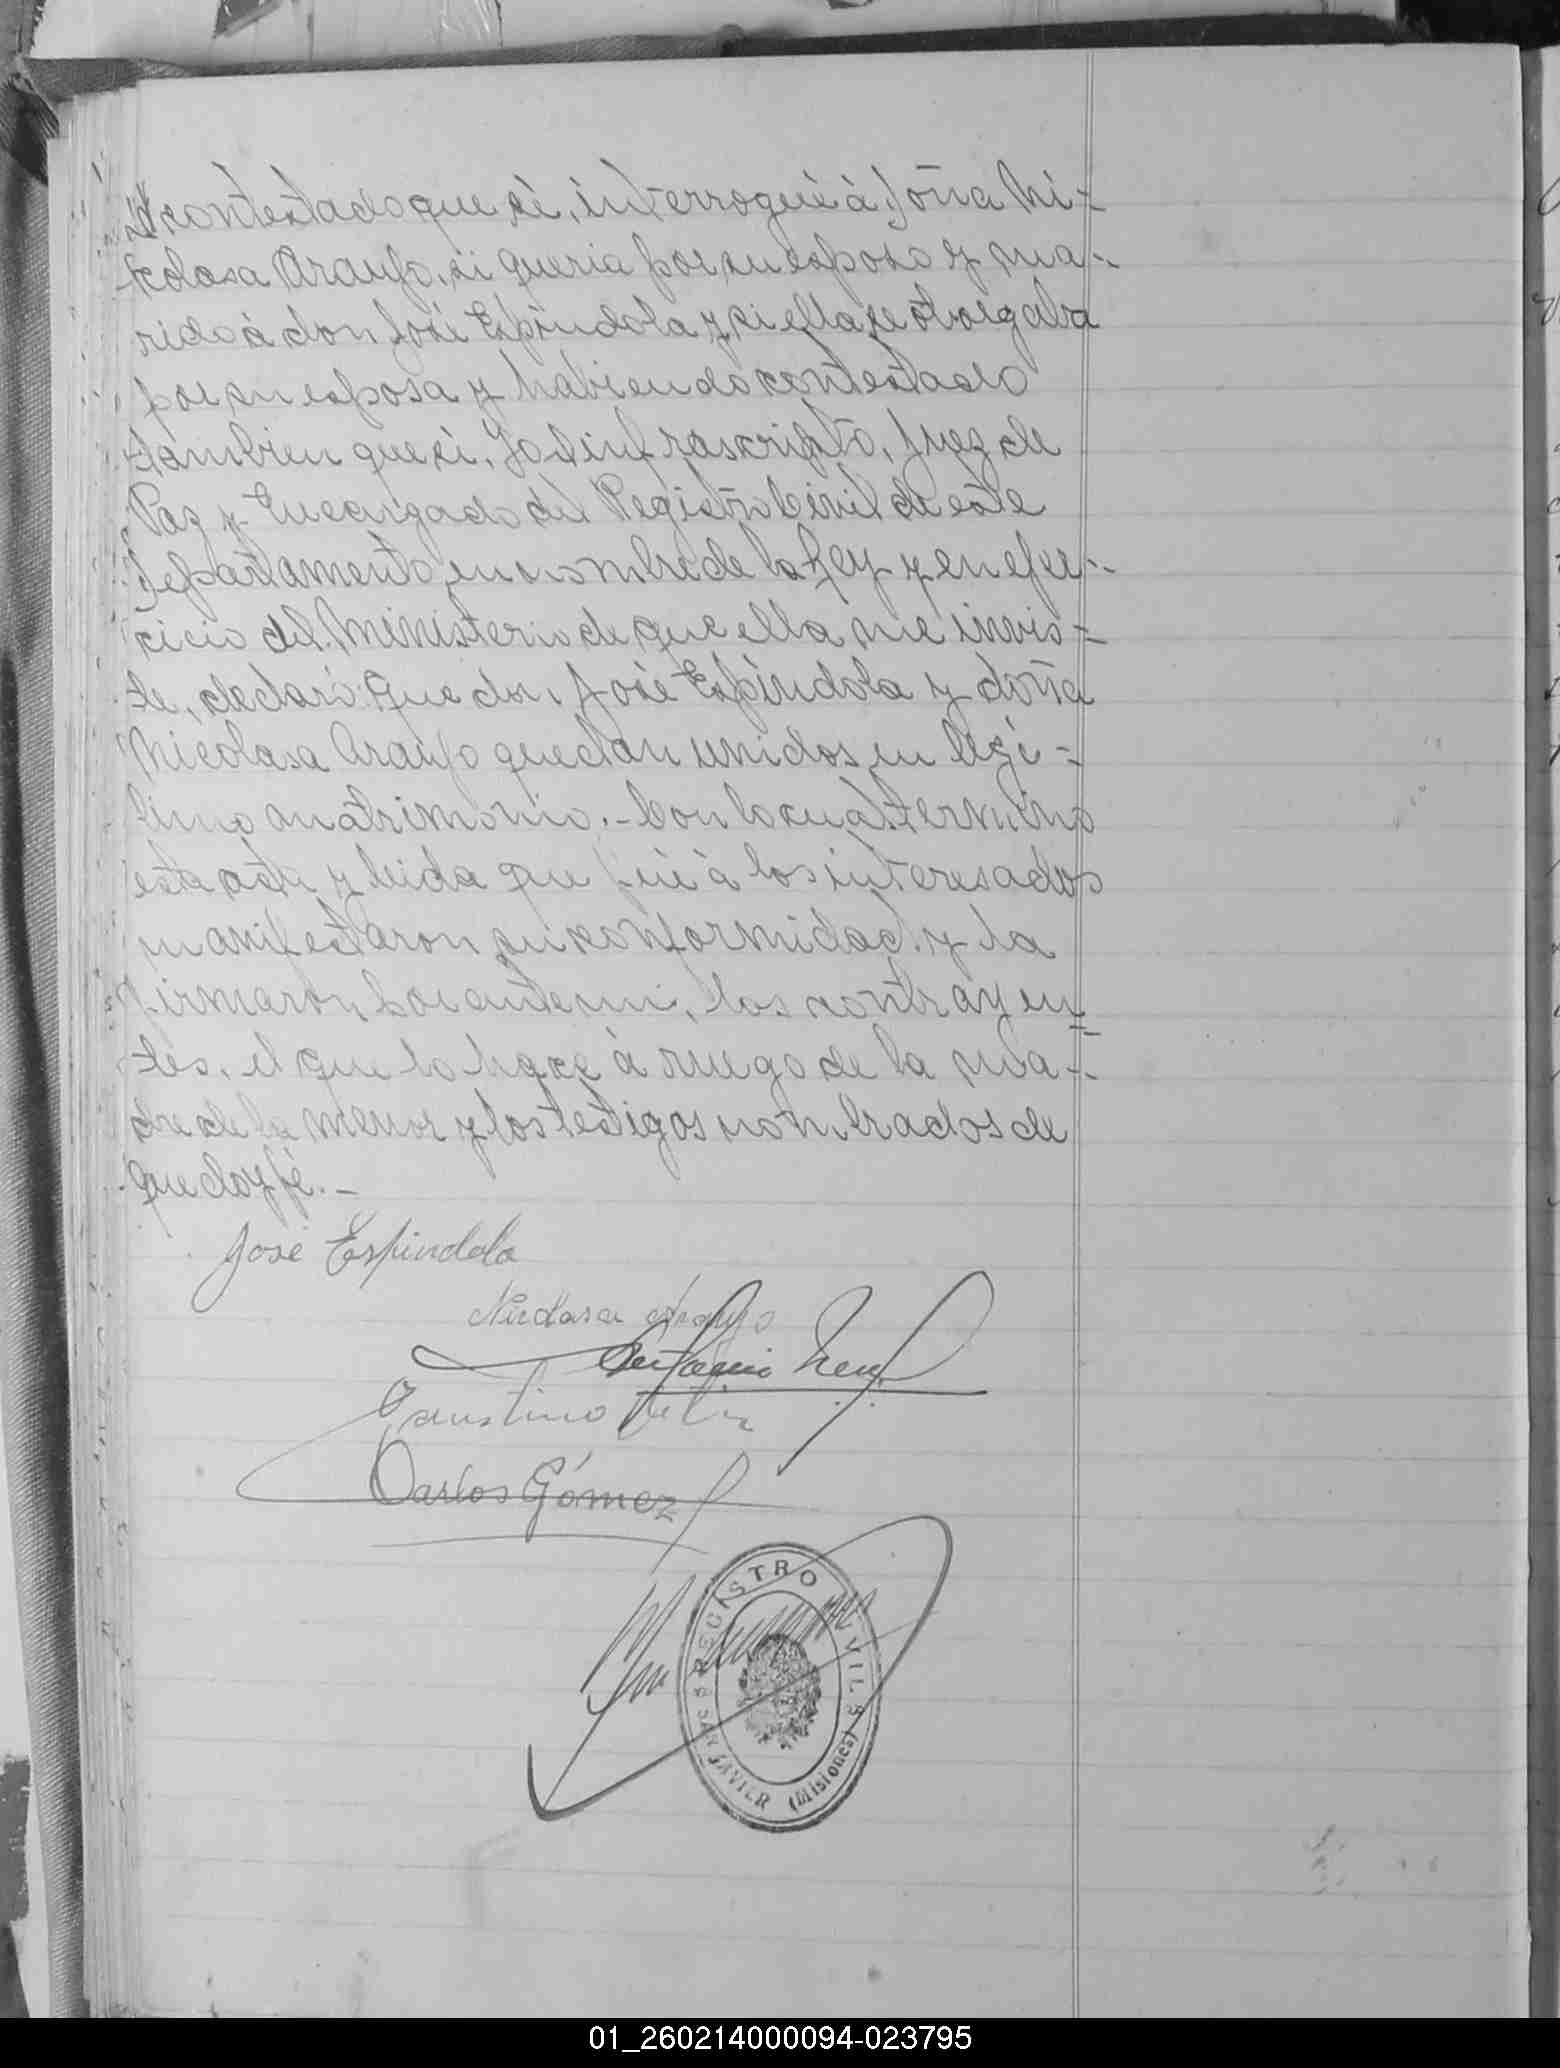 contestado que si, interrogué à Doña Ni=
colasa Araujo, si queria por su esposo y ma-
rido à don José Espindola y si ella se otorgaba
por su esposa y habiendo contestado
tambien que si, Yo el infrascripto, Juez de
Paz y Encargado del Registro Civil de este
Departamento en nombre de la Ley y en ejer-
cicio del Ministerio de que ella me invis=
te, declaró: Que don José Espindola y doña
Nicolasa Araujo quedan unidos en legi=
timo matrimonio.- Con lo cual terminò
esta acta y leida que fué à los interesados
manifestaron su conformidad y la
firmaron por ante mi, los contrayen=
tes, el que lo hace à ruego de la ma-
dre de la menor y los testigos nombrados de
que doy fé.-
José Espindola
Nicolasa Araujo
Antonio
Faustino
Carlos Gómez
REGISTRO CIVIL
SAN JAVIER (Misiones)
01_260214000094-023795